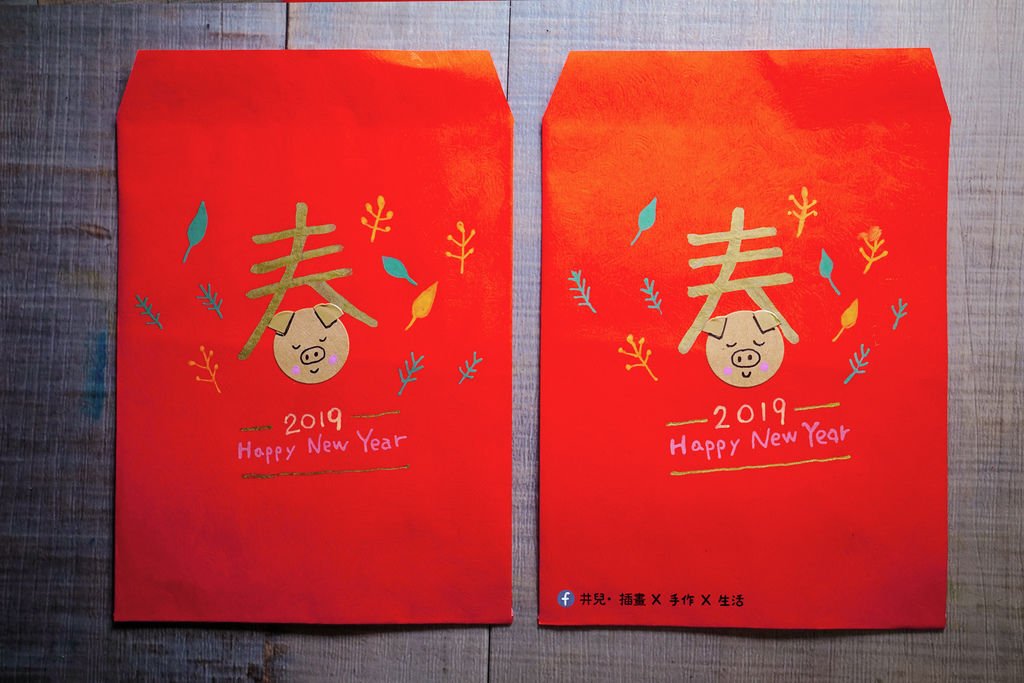 春
2019
Happy New Year
春
2019
Happy New Year
井兒· 插畫 X 手作 X 生活